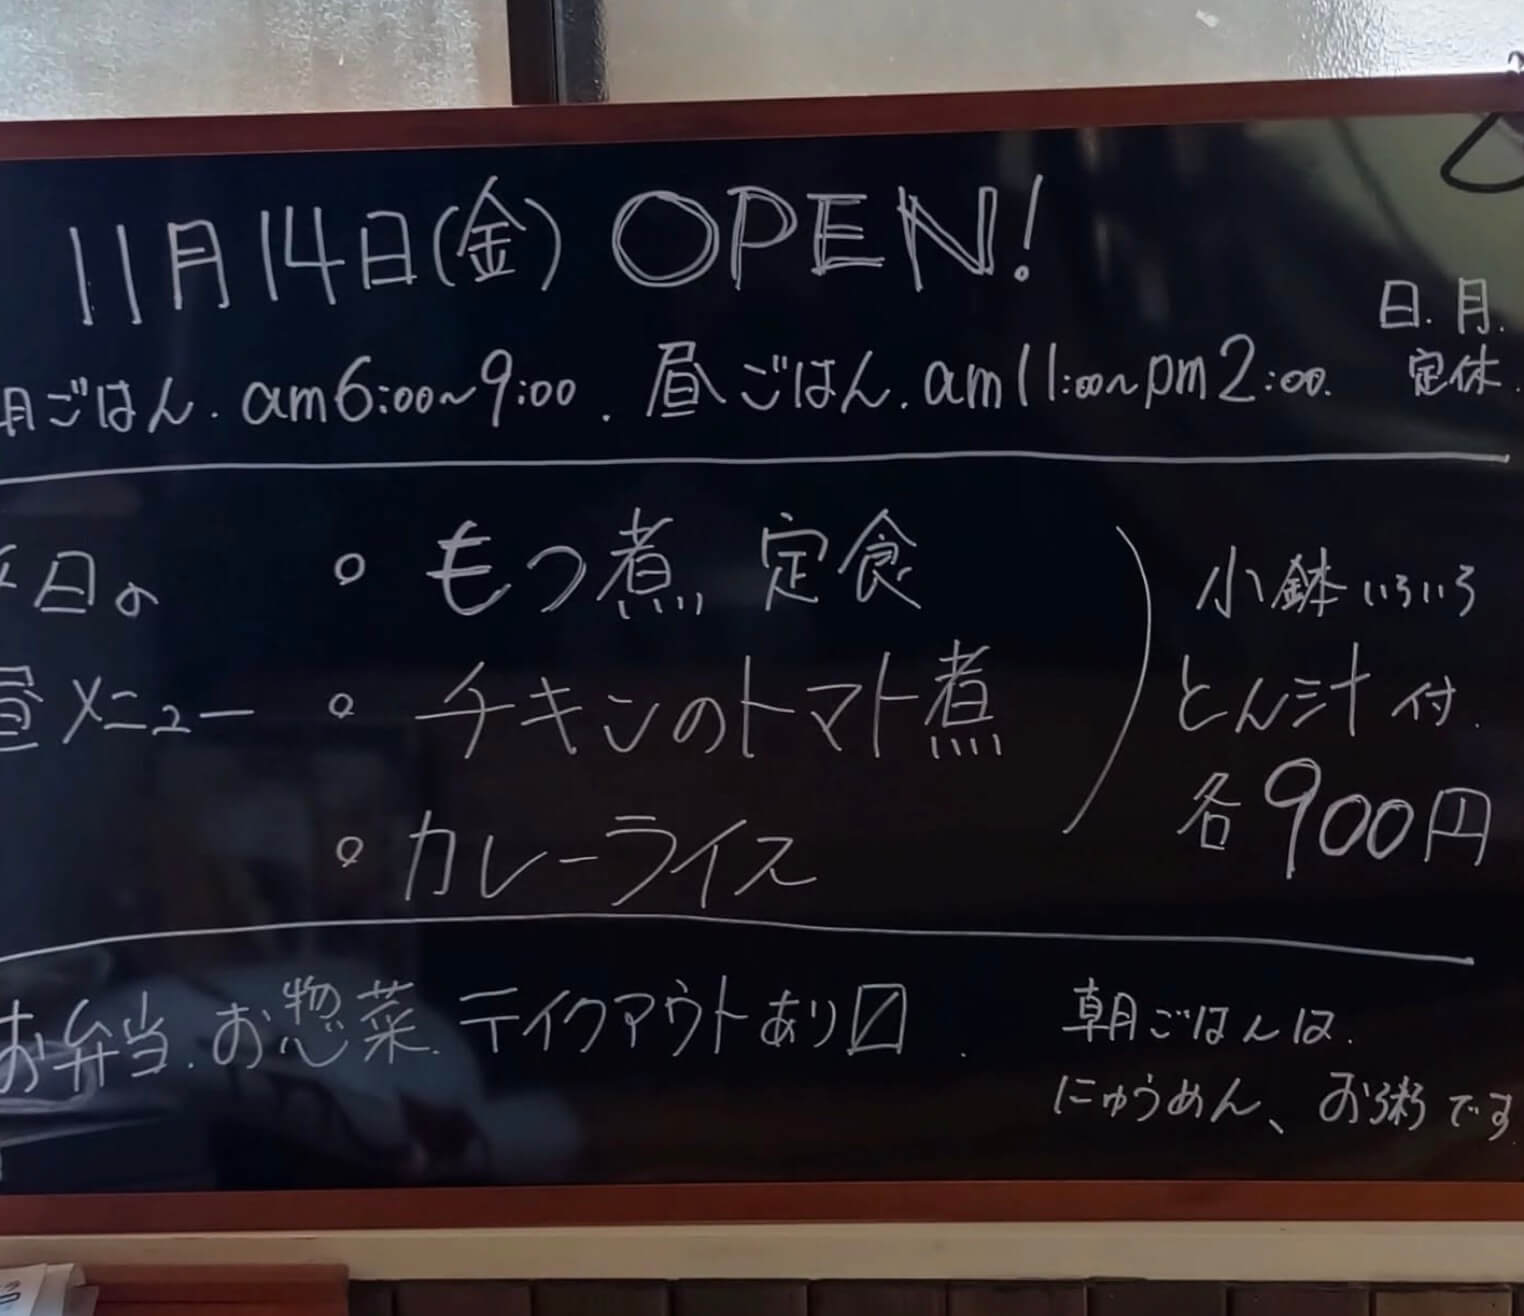 11月14日(金) OPEN!
日.月.
定休.
朝ごはん. am6:00〜9:00. 昼ごはん. am11:00〜pm2:00.
平日の
昼メニュー
。もつ煮 定食
。チキンのトマト煮
。カレーライス
小鉢いろいろ
とん汁付.
各900円
お弁当.お惣菜.テイクアウトあり〼.
朝ごはんは.
にゅうめん、お粥です